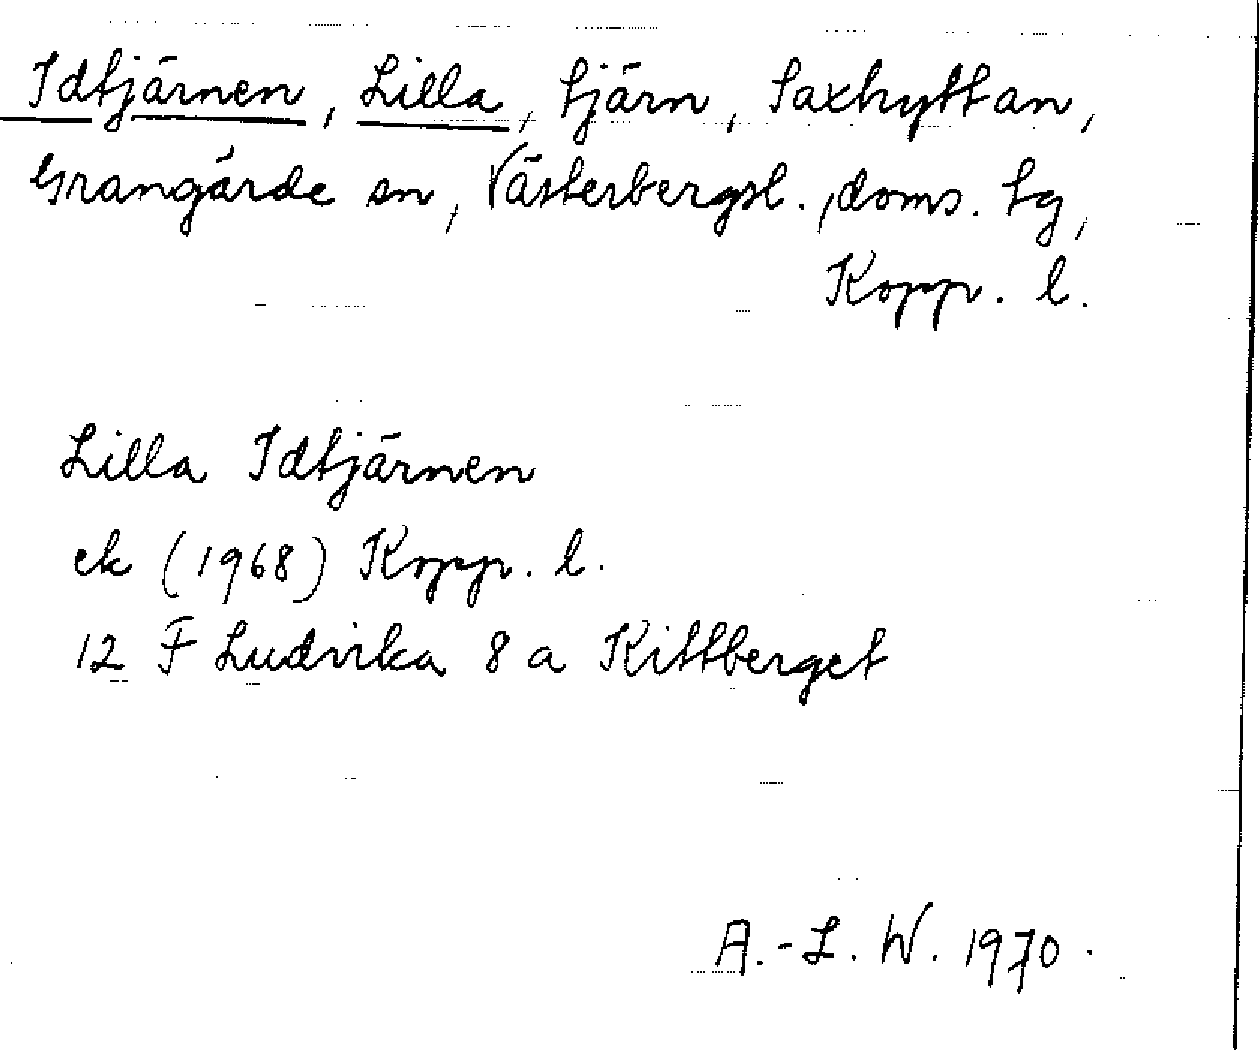 Idtjärnen, Lilla, tjärn, Saxhyttan,
Grangärde sn, Västerbergsl., doms. tg,
Kopp. l.
Lilla Idtjärnen
ek (1968) Kopp. l.
12 F Ludvika 8 a Kittberget
A.-L. W. 1970.